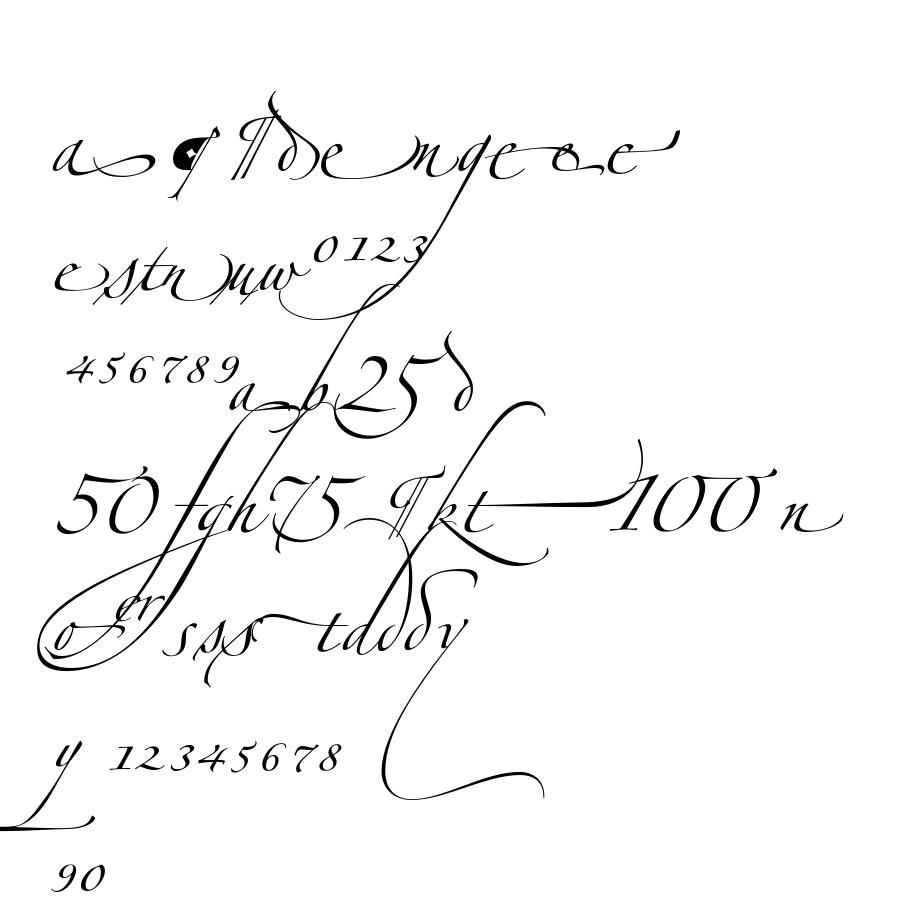 a ¶ ¶ d e n g e e e
e s t n u w 0 1 2 3
4 5 6 7 8 9 a b 25 d
50 f g h 75 ¶ k t 100 n
o er s s s t d d d y
y 1 2 3 4 5 6 7 8
9 0